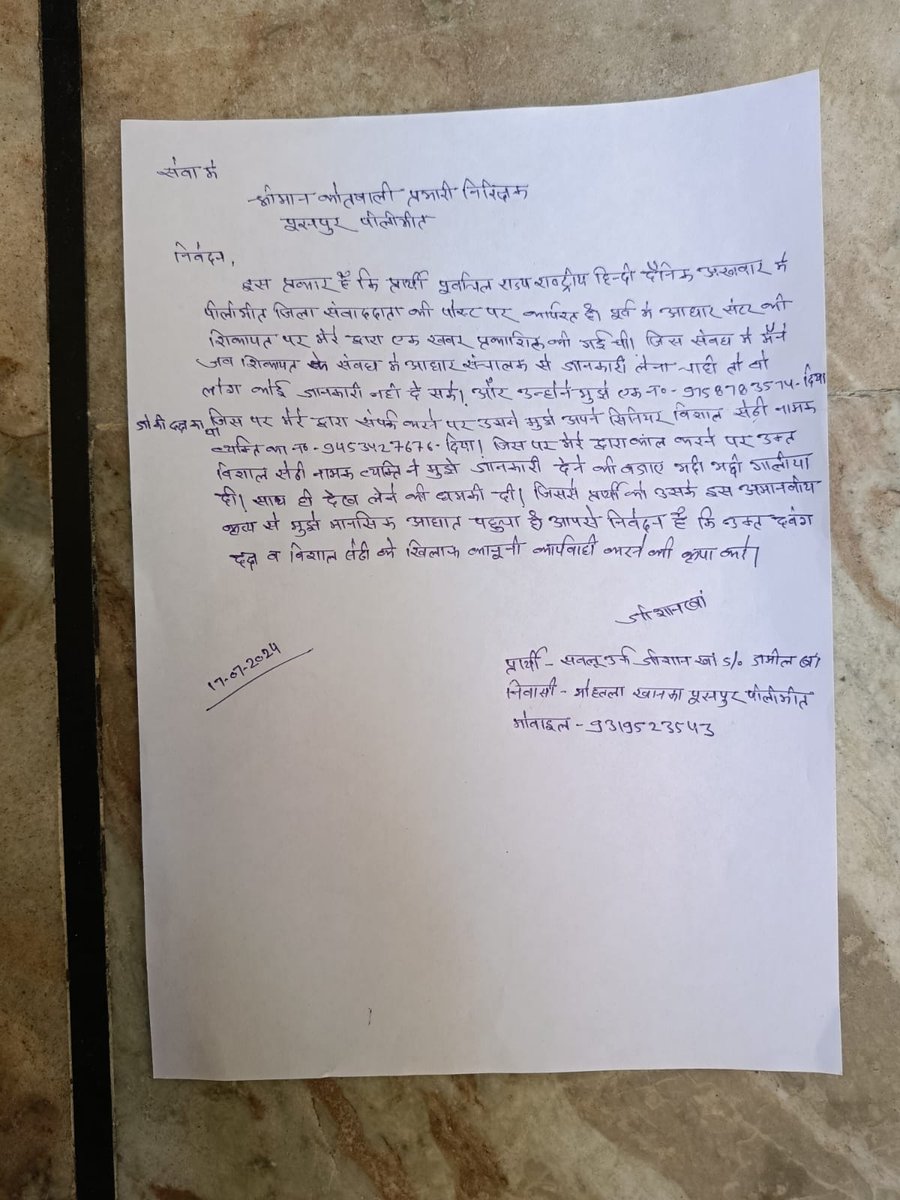 सेवा मे
श्रीमान कोतवाली प्रभारी निरिक्षक
पूरनपुर पीलीभीत
निवेदन,
इस प्रकार है कि प्रार्थी राष्ट्रीय हिन्दी दैनिक अखवार मे
पीलीभीत जिला संवाददाता की पोस्ट पर कार्यरत है। पूर्व मे आधार सेंटर की
शिकायत पर मेरे द्वारा एक खबर प्रकाशित की गई थी। जिस संबध मे मैने
जब शिकायत के संबध मे आधार संचालक से जानकारी लेना चाही तो वो
लोग कोई जानकारी नही दे सके। और उन्होने मुझे एक न०- 9158783574- दिया
जो की दक्ष का था जिस पर मेरे द्वारा संपर्क करने पर उसने मुझे अपने सिनियर विशाल सेठी नामक
व्यक्ति का न०-9453427676- दिया। जिस पर मेरे द्वारा काल करने पर उक्त
विशाल सेठी नामक व्यक्ति ने मुझे जानकारी देने की वजाए भद्दी भद्दी गालीया
दी। साथ ही देख लेने की धमकी दी। जिससे प्रार्थी को उसके इस अमानवीय
कृत्य से मुझे मानसिक आघात पहुचा है आपसे निवेदन है कि उक्त दबंग
दक्ष व विशाल सेठी के खिलाफ कानूनी कार्यवाही करने की कृपा करे।
जीशान खां
17-07-2024
प्रार्थी - सबलू उर्फ जीशान खां S/o जमील खां
निवासी - मोहल्ला खानका पूरनपुर पीलीभीत
मोबाइल - 9319523543